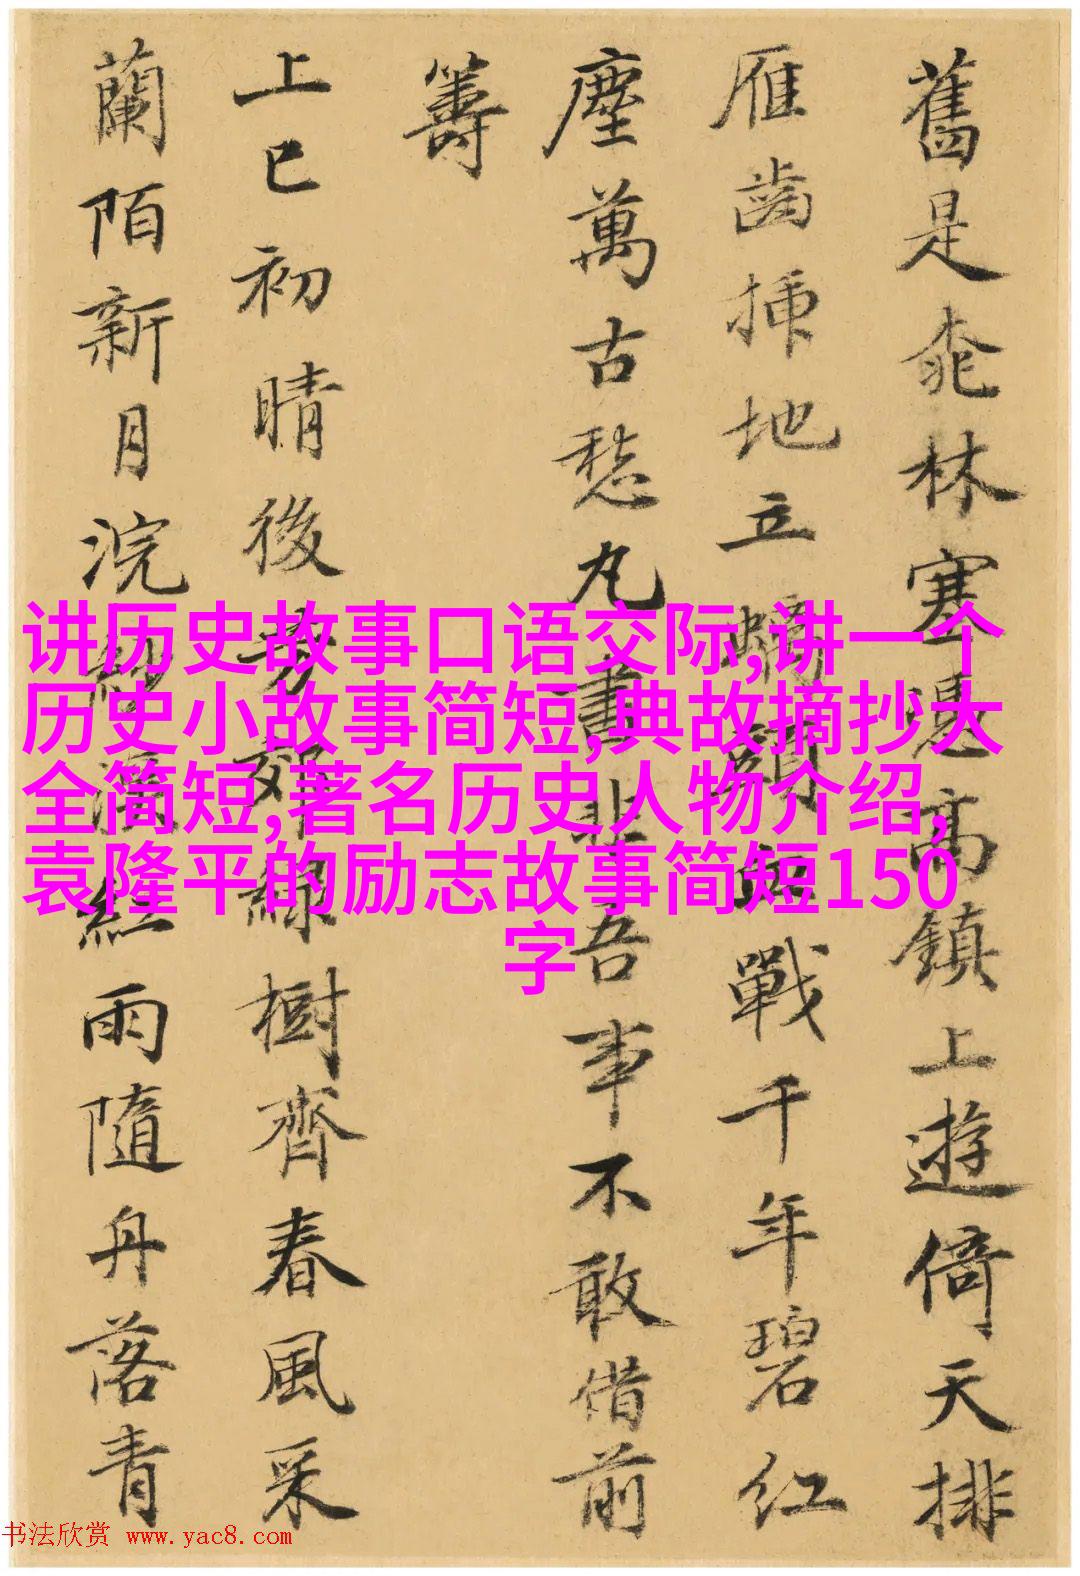 舊是𣑯林塞漫高鎮上遊倚天排
雁齒插地立螭頭蛇戰千年碧紅
塵萬古愁九書非吾事不敢借前
籌
上巳初晴後芳郊綠樹齊春風采
蘭陌新月浣紗溪紅雨隨舟落青
讲历史故事口语交际,讲一个
历史小故事简短,典故摘抄大
全简短,著名历史人物介绍,
袁隆平的励志故事简短150
字
书法欣赏 www.yac8.com